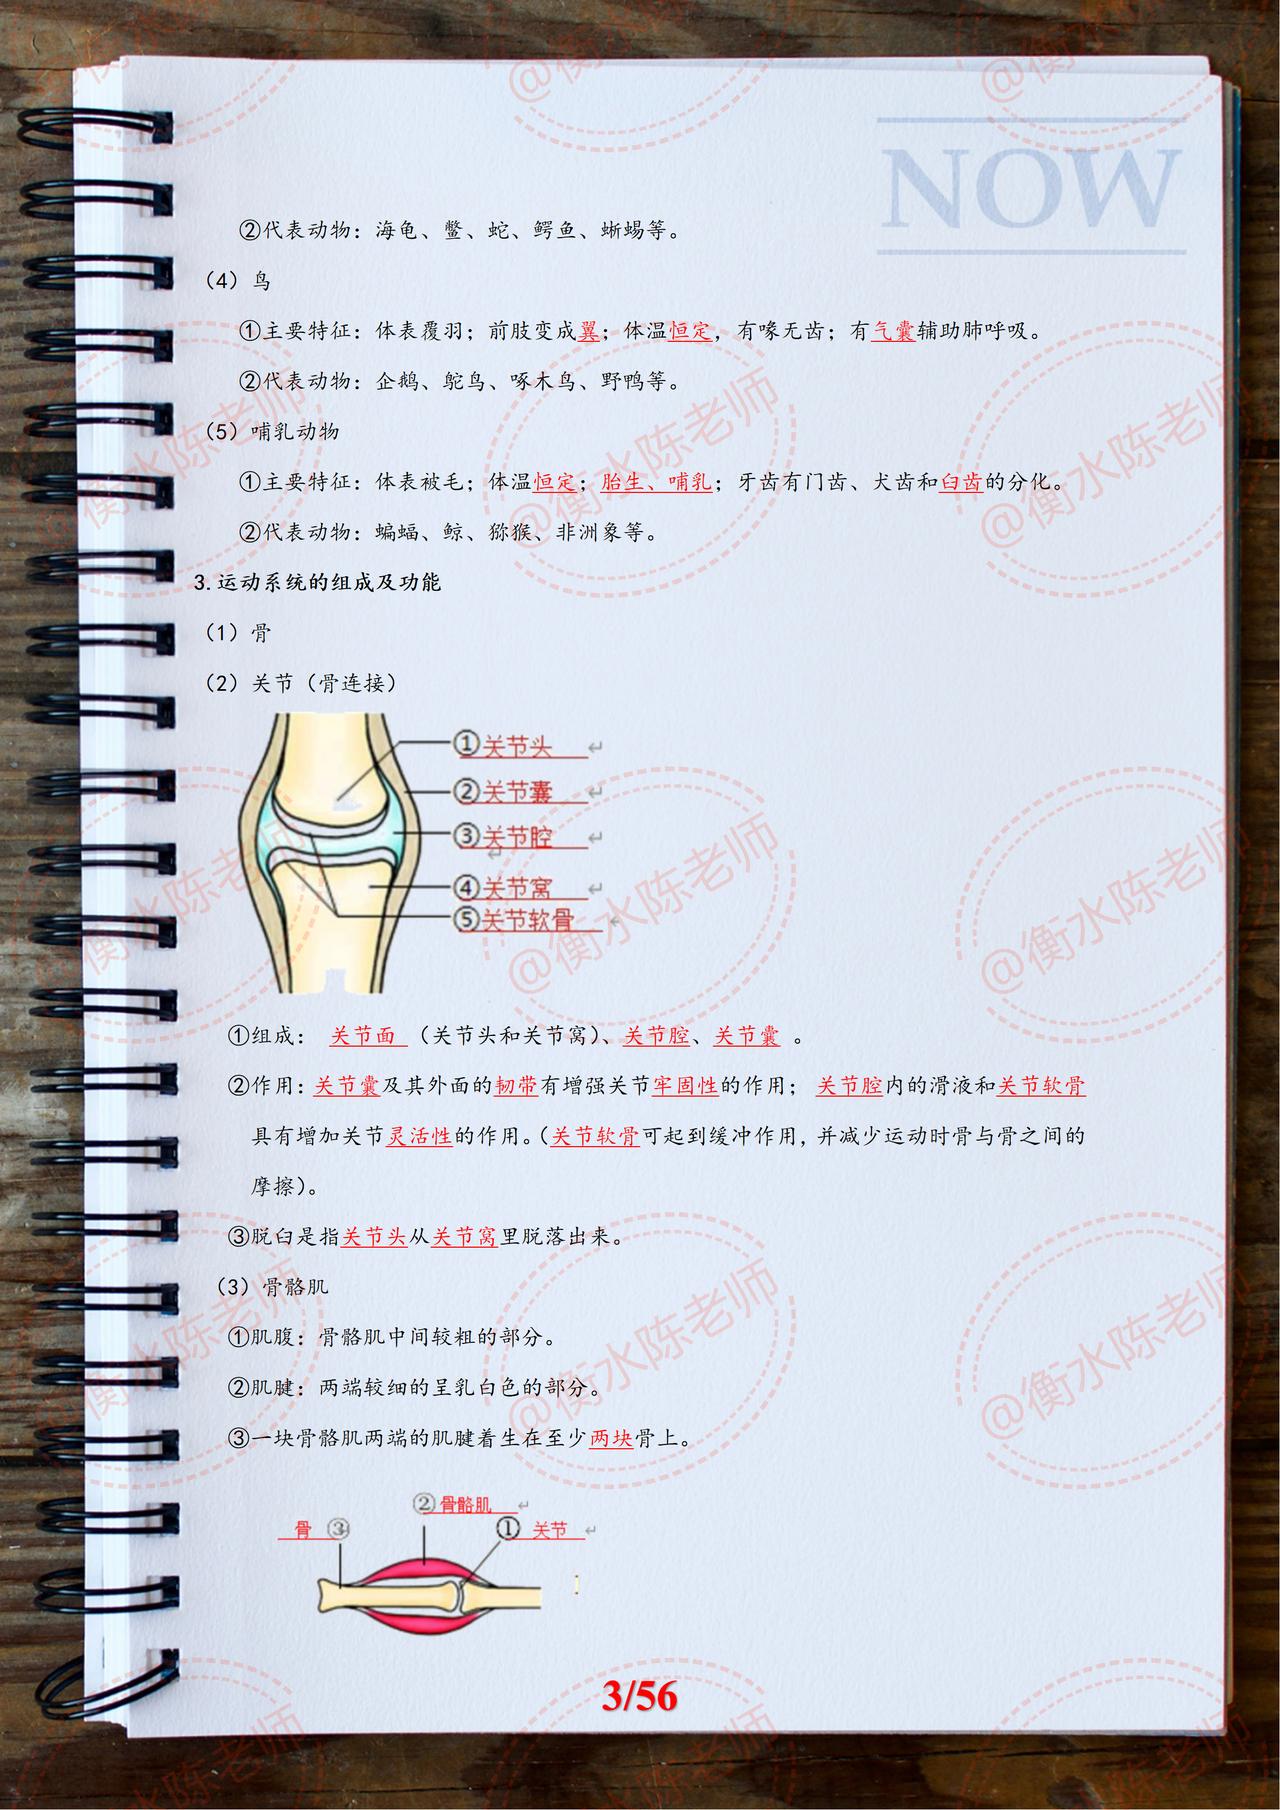 NOW
②代表动物：海龟、鳖、蛇、鳄鱼、蜥蜴等。
（4）鸟
①主要特征：体表覆羽；前肢变成翼；体温恒定，有喙无齿；有气囊辅助肺呼吸。
②代表动物：企鹅、鸵鸟、啄木鸟、野鸭等。
（5）哺乳动物
①主要特征：体表被毛；体温恒定；胎生、哺乳；牙齿有门齿、犬齿和臼齿的分化。
②代表动物：蝙蝠、鲸、猕猴、非洲象等。
3.运动系统的组成及功能
（1）骨
（2）关节（骨连接）
①关节头
②关节囊
③关节腔
④关节窝
⑤关节软骨
①组成： 关节面 （关节头和关节窝）、关节腔、关节囊 。
②作用：关节囊及其外面的韧带有增强关节牢固性的作用； 关节腔内的滑液和关节软骨
具有增加关节灵活性的作用。（关节软骨可起到缓冲作用，并减少运动时骨与骨之间的
摩擦）。
③脱臼是指关节头从关节窝里脱落出来。
（3）骨骼肌
①肌腹：骨骼肌中间较粗的部分。
②肌腱：两端较细的呈乳白色的部分。
③一块骨骼肌两端的肌腱着生在至少两块骨上。
②骨骼肌
骨 ③
① 关节
3/56
@衡水陈老师